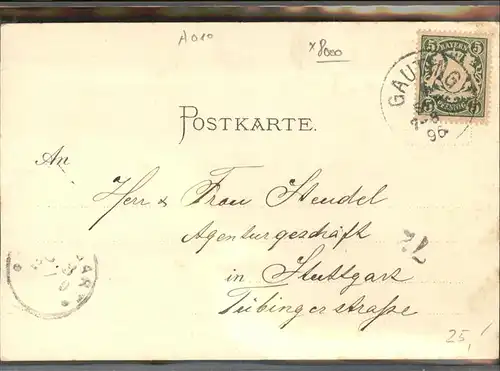 A010
x 8000
5 BAYERN 5
5 PFENNIG 5
GAUTING
98
POSTKARTE.
An
Herr & Frau Stendel
Agenturgeschäft
in Stuttgart
Tübingerstraße
25,